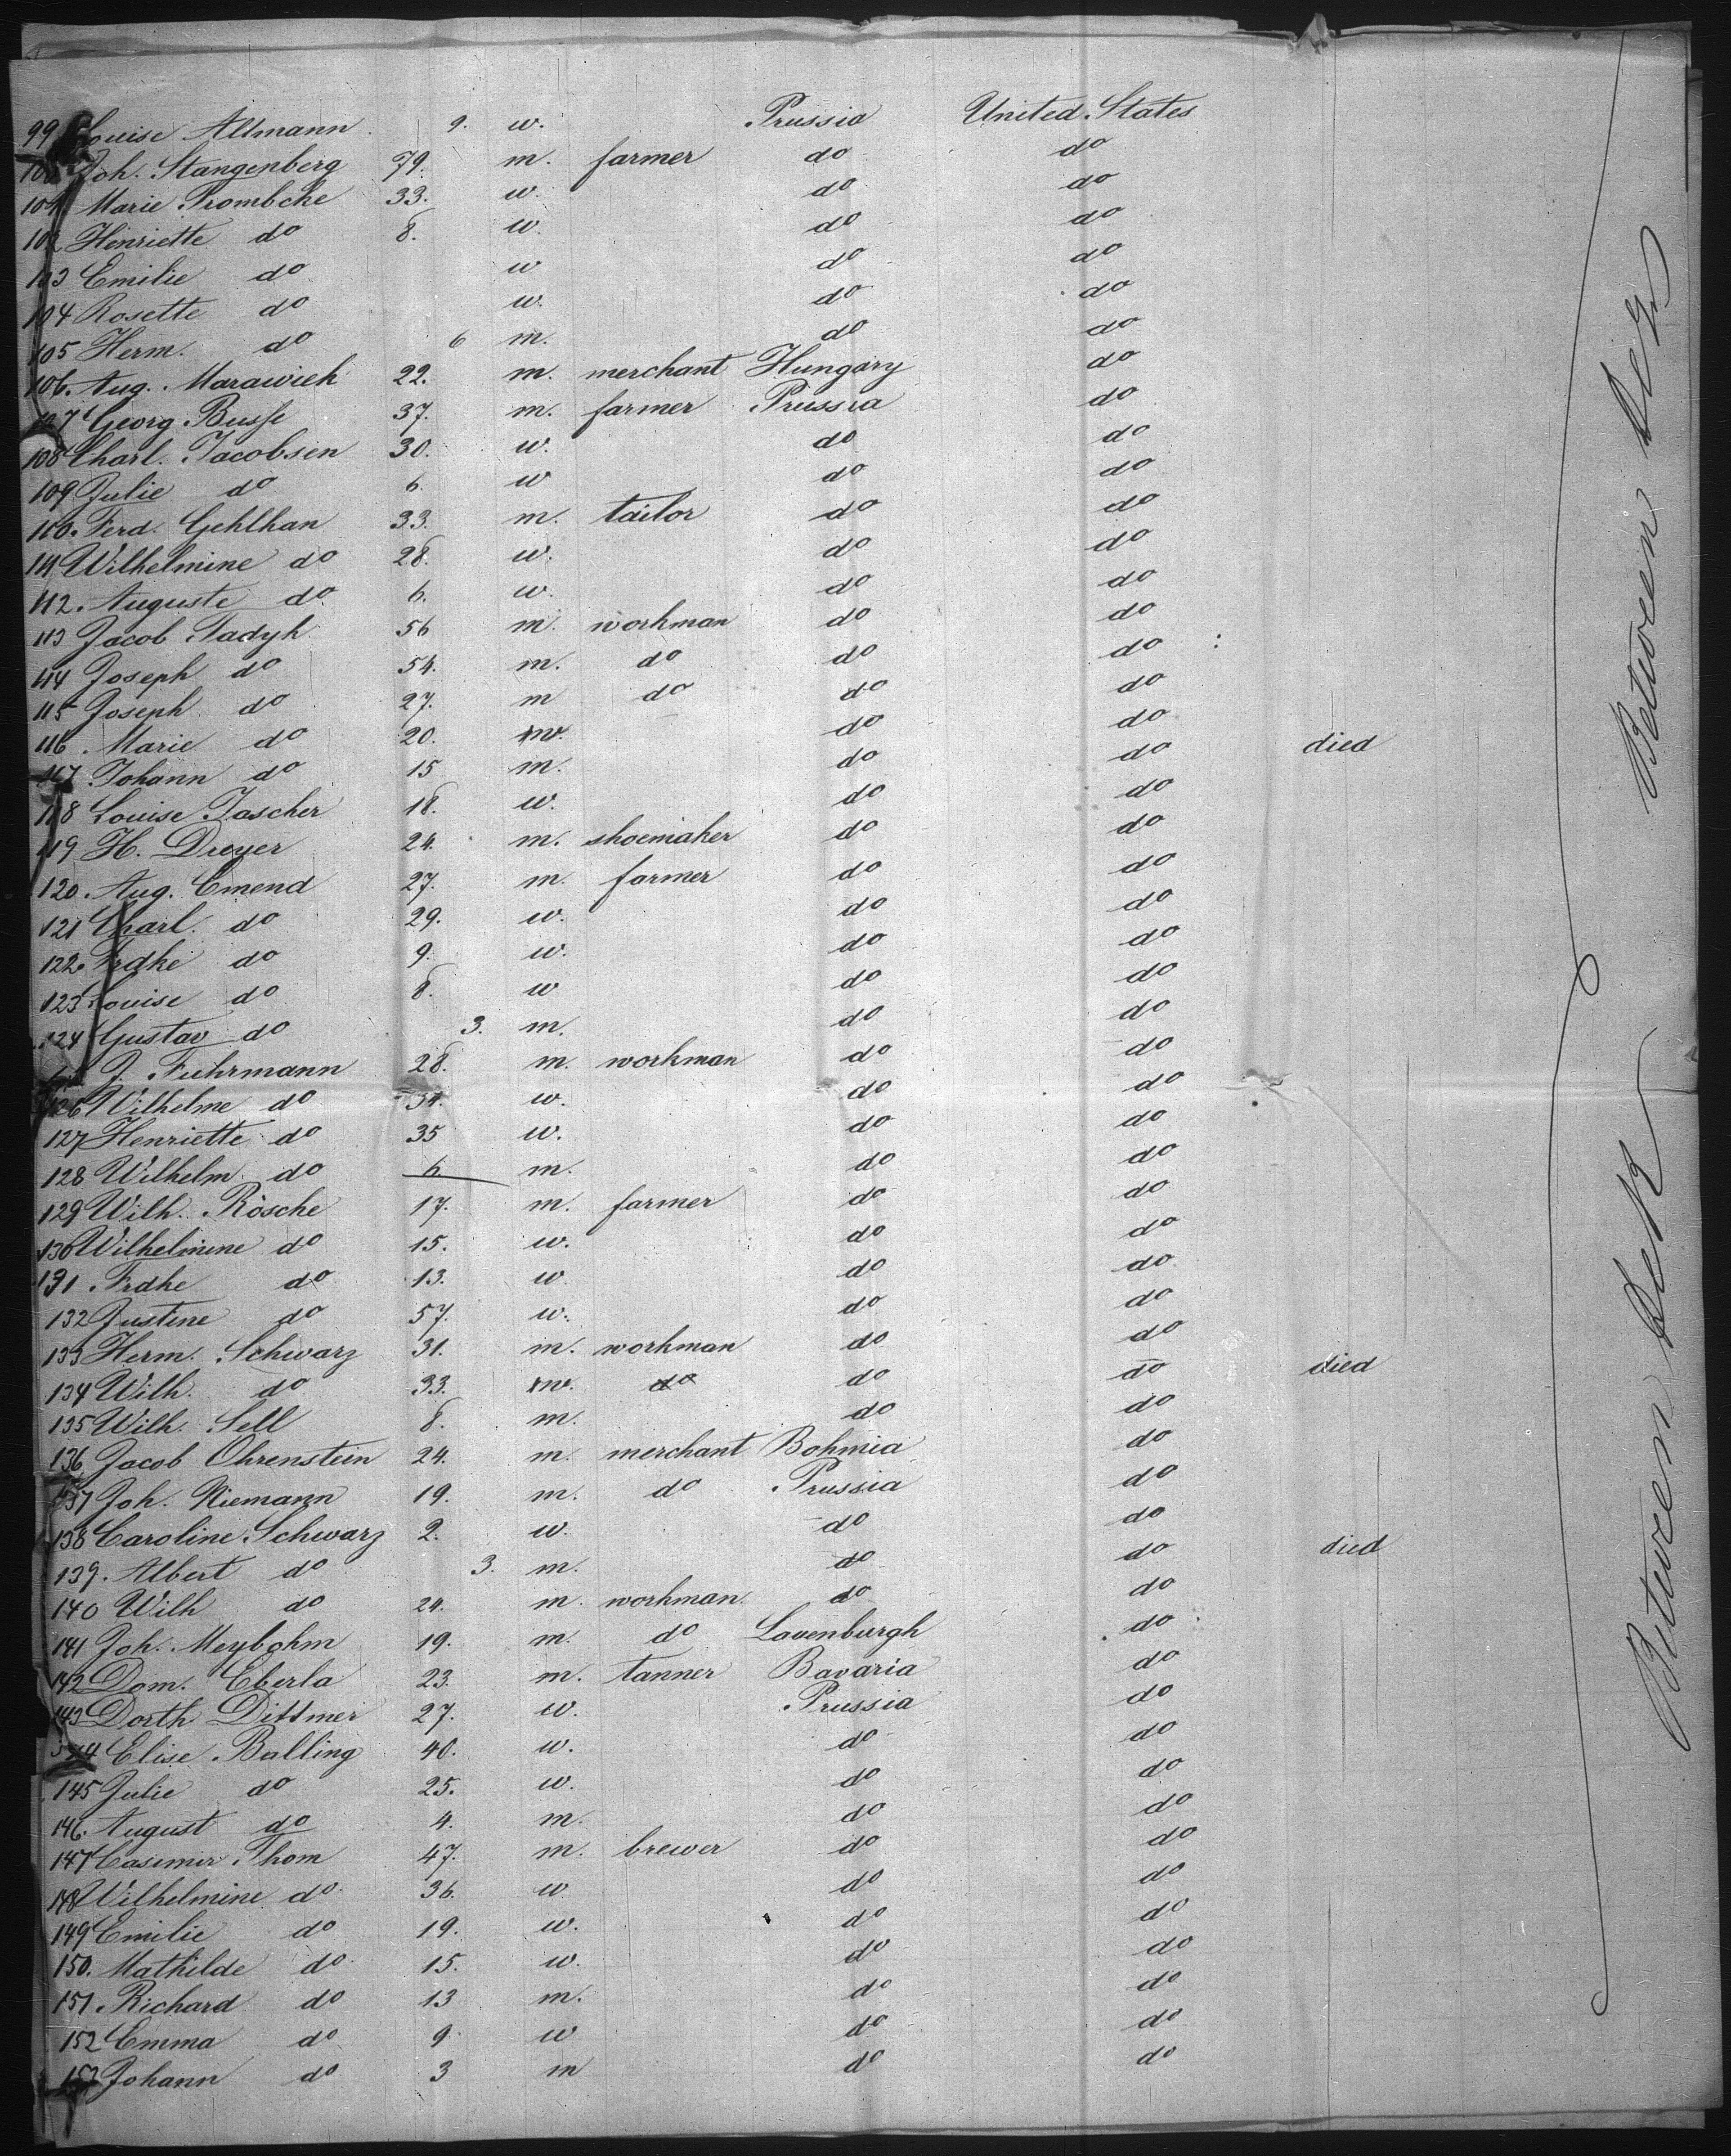 99 Louise Altmann 9. w. Prussia United States
100 Joh. Stangenberg 79. m. farmer do do
101 Marie Prombcke 33. w. do do
102 Henriette do 8. w. do do
103 Emilie do w do do
104 Rosette do w. do do
105 Herm. do 6 m. do do
106. Aug. Marawich 22. m. merchant Hungary do
107 Georg Busse 37. m. farmer Prussia do
108 Charl. Jacobsen 30. w. do do
109 Julie do 6. w do do
110. Ferd. Gehlhan 33. m. tailor do do
111 Wilhelmine do 28. w. do do
112. Auguste do 6. w. do do
113 Jacob Tadych 56 m. workman do do
114 Joseph do 54. m. do do do
115 Joseph do 27. m do do do
116. Marie do 20. w. do do
117 Johann do 15 m. do do died
118 Louise Tascher 18. w. do do
119 H. Dreyer 24. m. shoemaker do do
120. Aug. Emend 27. m. farmer do do
121 Charl. do 29. w. do do
122. Frdke do 9. w. do do
123 Louise do 8. w do do
124 Gustav do 3. m. do do
J. Fuhrmann 28. m. workman do do
126 Wilhelme do 34. w. do do
127 Henriette do 35 w. do do
128 Wilhelm do 6. m. do do
129 Wilh. Rösche 17. m. farmer do do
130 Wilhelmine do 15. w. do do
131. Frdke do 13. w. do do
132 Justine do 57. w. do do
133 Herm. Schwarz 31. m. workman do do
134 Wilh. do 33. w. do do do died
135 Wilh. Sell 8. m. do do
136 Jacob Ohrenstein 24. m. merchant Bohmia do
137 Joh. Niemann 19. m. do Prussia do
138 Caroline Schwarz 2. w. do do
139. Albert do 3. m. do do died
140 Wilh do 24. m. workman do do
141 Joh. Meybohm 19. m. do Lavenburgh do
142 Dom. Eberla 23. m. tanner Bavaria do
143 Dorth Dittmer 27. w. Prussia do
144 Elise Balling 40. w. do do
145 Julie do 25. w. do do
146. August do 4. m. do do
147 Casimir Thom 47. m. brewer do do
148 Wilhelmine do 36. w do do
149 Emilie do 19. w. do do
150. Mathilde do 15. w. do do
151. Richard do 13 m. do do
152 Emma do 9 w do do
153 Johann do 3 m do do
Between deck Between deck